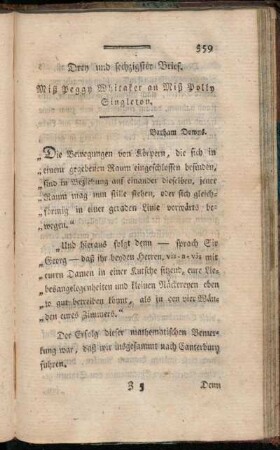 359
Drey und sechzigster Brief.
Miß Peggy Whitaker an Miß Polly
Singleton.
Barham Downs.
„Die Bewegungen von Körpern, die sich in
„einem gegebenen Raum eingeschlossen befinden,
„sind in Beziehung auf einander dieselben, jener
„Raum mag nun stille stehen, oder sich gleich-
„förmig in einer geraden Linie vorwärts be-
„wegen.“
„Und hieraus folgt denn — sprach Sir
„Georg — daß ihr beyden Herren, vis-a-vis mit
„euren Damen in einer Kutsche sitzend, eure Lie-
„besangelegenheiten und kleinen Näckereyen eben
„so gut betreiben könnt, als in den vier Wän-
„den eines Zimmers.“
Der Erfolg dieser mathematischen Bemer-
kung war, daß wir insgesammt nach Canterbury
führen.
Z 5
Denn